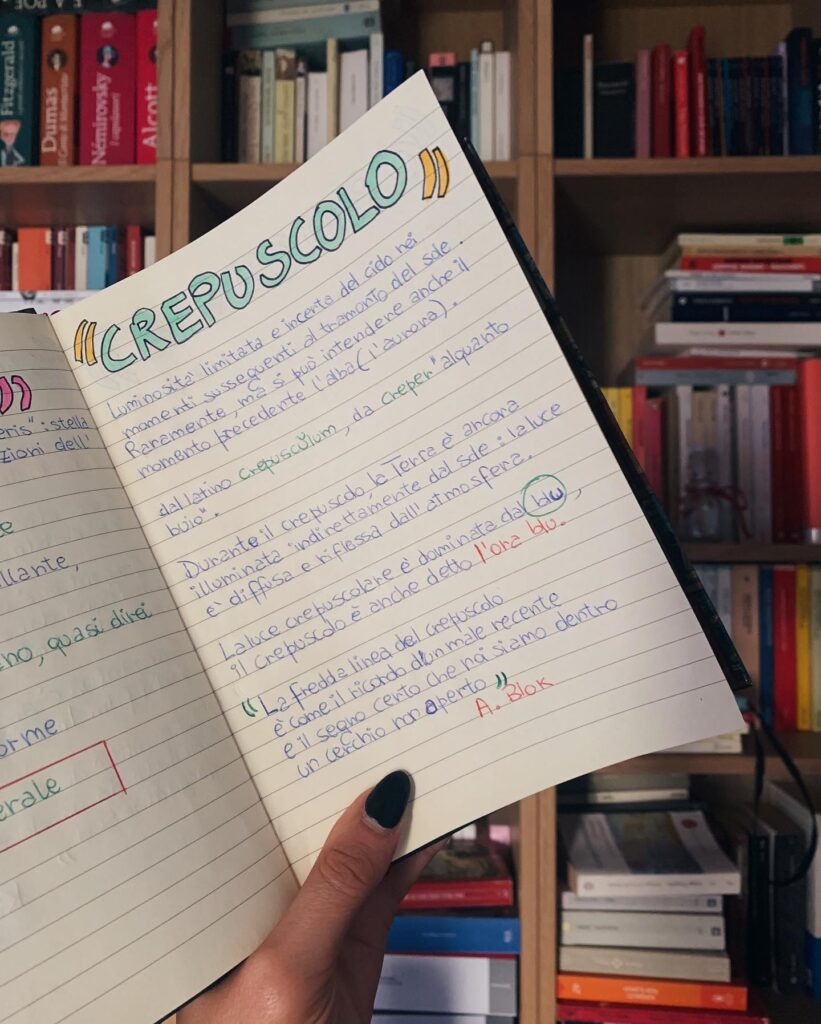 Fitzgerald
Dumas
Némirovsky
Alcott
"CREPUSCOLO"
luminosità limitata e incerta del cielo nei
momenti susseguenti al tramonto del sole.
Raramente, ma si può intendere anche il
momento precedente l'alba (l'aurora).
dal latino crepuscŭlum, da creper "alquanto
buio".
Durante il crepuscolo, la Terra è ancora
illuminata indirettamente dal sole: la luce
è diffusa e riflessa dall'atmosfera.
La luce crepuscolare è dominata dal blu,
il crepuscolo è anche detto l'ora blu.
"La fredda linea del crepuscolo
è come il ricordo d'un male recente
e il segno certo che noi siamo dentro
un cerchio non aperto"
A. Blok
eris": stella
zioni dell'
llante,
no, quasi direi
orme
erale